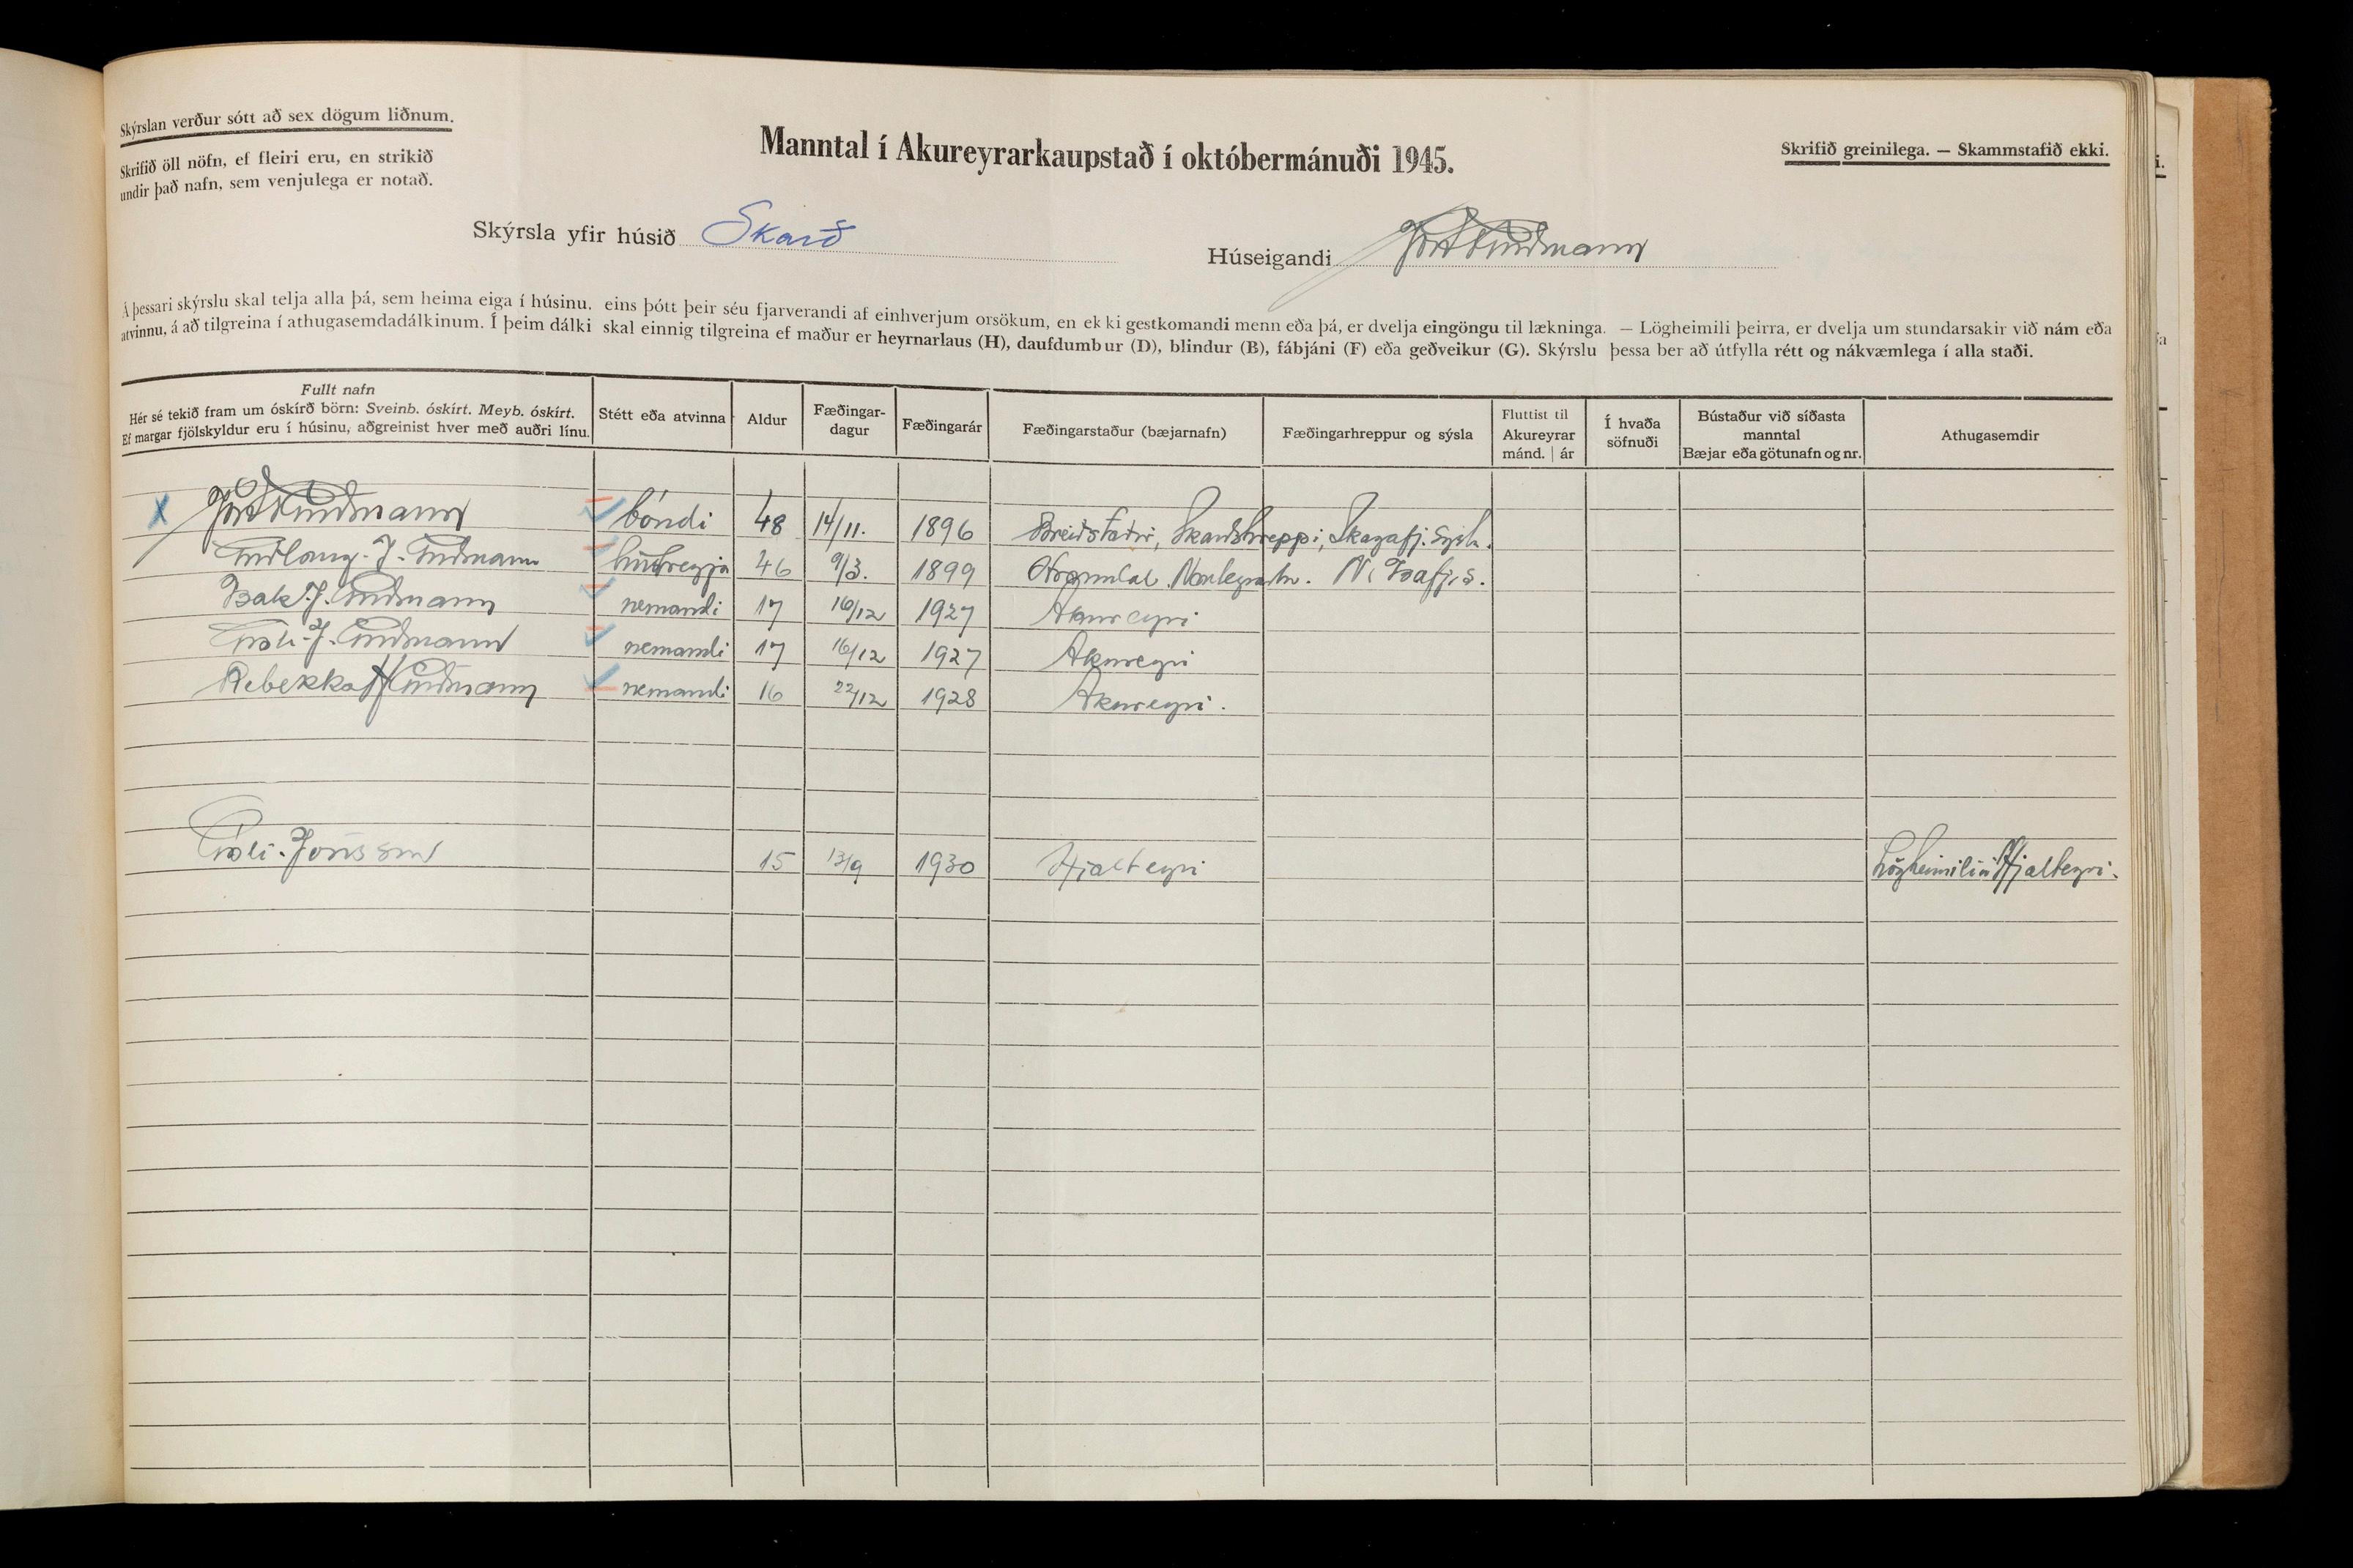 Skýrslan verður sótt að sex dögum liðnum.
Skrifið öll nöfn, ef fleiri eru, en strikið
undir það nafn, sem venjulega er notað.
Manntal í Akureyrarkaupstað í októbermánuði 1945.
Skrifið greinilega. — Skammstafið ekki.
Skýrsla yfir húsið Skarð
Húseigandi Jón Guðmann
Á þessari skýrslu skal telja alla þá, sem heima eiga í húsinu, eins þótt þeir séu fjarverandi af einhverjum orsökum, en ekki gestkomandi menn eða þá, er dvelja eingöngu til lækninga. — Lögheimili þeirra, er dvelja um stundarsakir við nám eða
atvinnu, á að tilgreina í athugasemdadálkinum. Í þeim dálki skal einnig tilgreina ef maður er heyrnarlaus (H), daufdumbur (D), blindur (B), fábjáni (F) eða geðveikur (G). Skýrslu þessa ber að útfylla rétt og nákvæmlega í alla staði.
Fullt nafn
Hér sé tekið fram um óskírð börn: Sveinb. óskírt. Meyb. óskírt.
Ef margar fjölskyldur eru í húsinu, aðgreinist hver með auðri línu.
Stétt eða atvinna
Aldur
Fæðingar-
dagur
Fæðingarár
Fæðingarstaður (bæjarnafn)
Fæðingarhreppur og sýsla
Fluttist til
Akureyrar
mánd. | ár
Í hvaða
söfnuði
Bústaður við síðasta
manntal
Bæjar eða götunafn og nr.
Athugasemdir
X Jón Guðmann bóndi 48 14/11. 1896 Breiðstaðir, Skarðshreppi, Skagafj. sýslu.
Guðlaug J. Guðmann húsfreyja 46 9/3. 1899 N. Ísafj.s.
Ísak J. Guðmann nemandi 17 16/12 1927 Akureyri
Gísli J. Guðmann nemandi 17 16/12 1927 Akureyri
Rebekka H Guðmann nemandi 16 22/12 1928 Akureyri.
Gísli Jónsson 15 13/9 1930 Hjalteyri Lögheimili Hjalteyri.